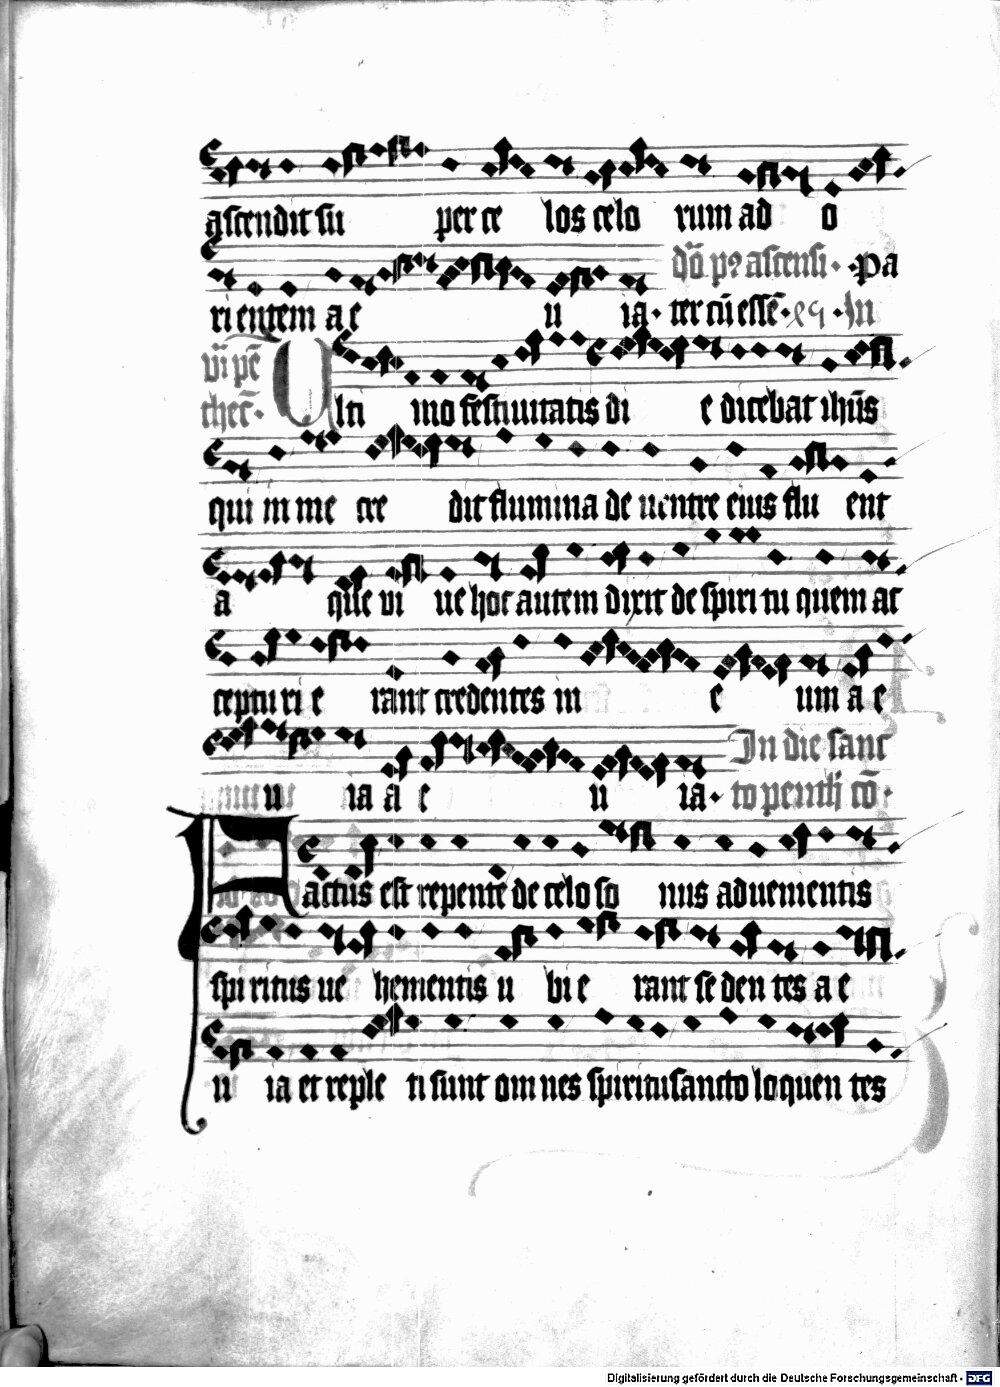 ascendit su per ce los celo rum ad o
dō pꝰ ascensi · Pa
ri entem a e u ia · ter cū essē · ꝛꝯ · In
vi᷑ pē
thec̄ · Ulti mo festiuitatis di e dicebat ihūs
qui in me cre dit flumina de uentre eius flu ent
a que vi ue hoc autem dixit de spiri tu quem ac
ceptu ri e rant credentes in e um a e
In die sanc
u ia a e u ia · to penth cō ·
Factus est repente de celo so nus aduenientis
spi ritus ue hementis u bi e rant se den tes a e
u ia et reple ti sunt om nes spiritusancto loquen tes
Digitalisierung gefördert durch die Deutsche Forschungsgemeinschaft - DFG